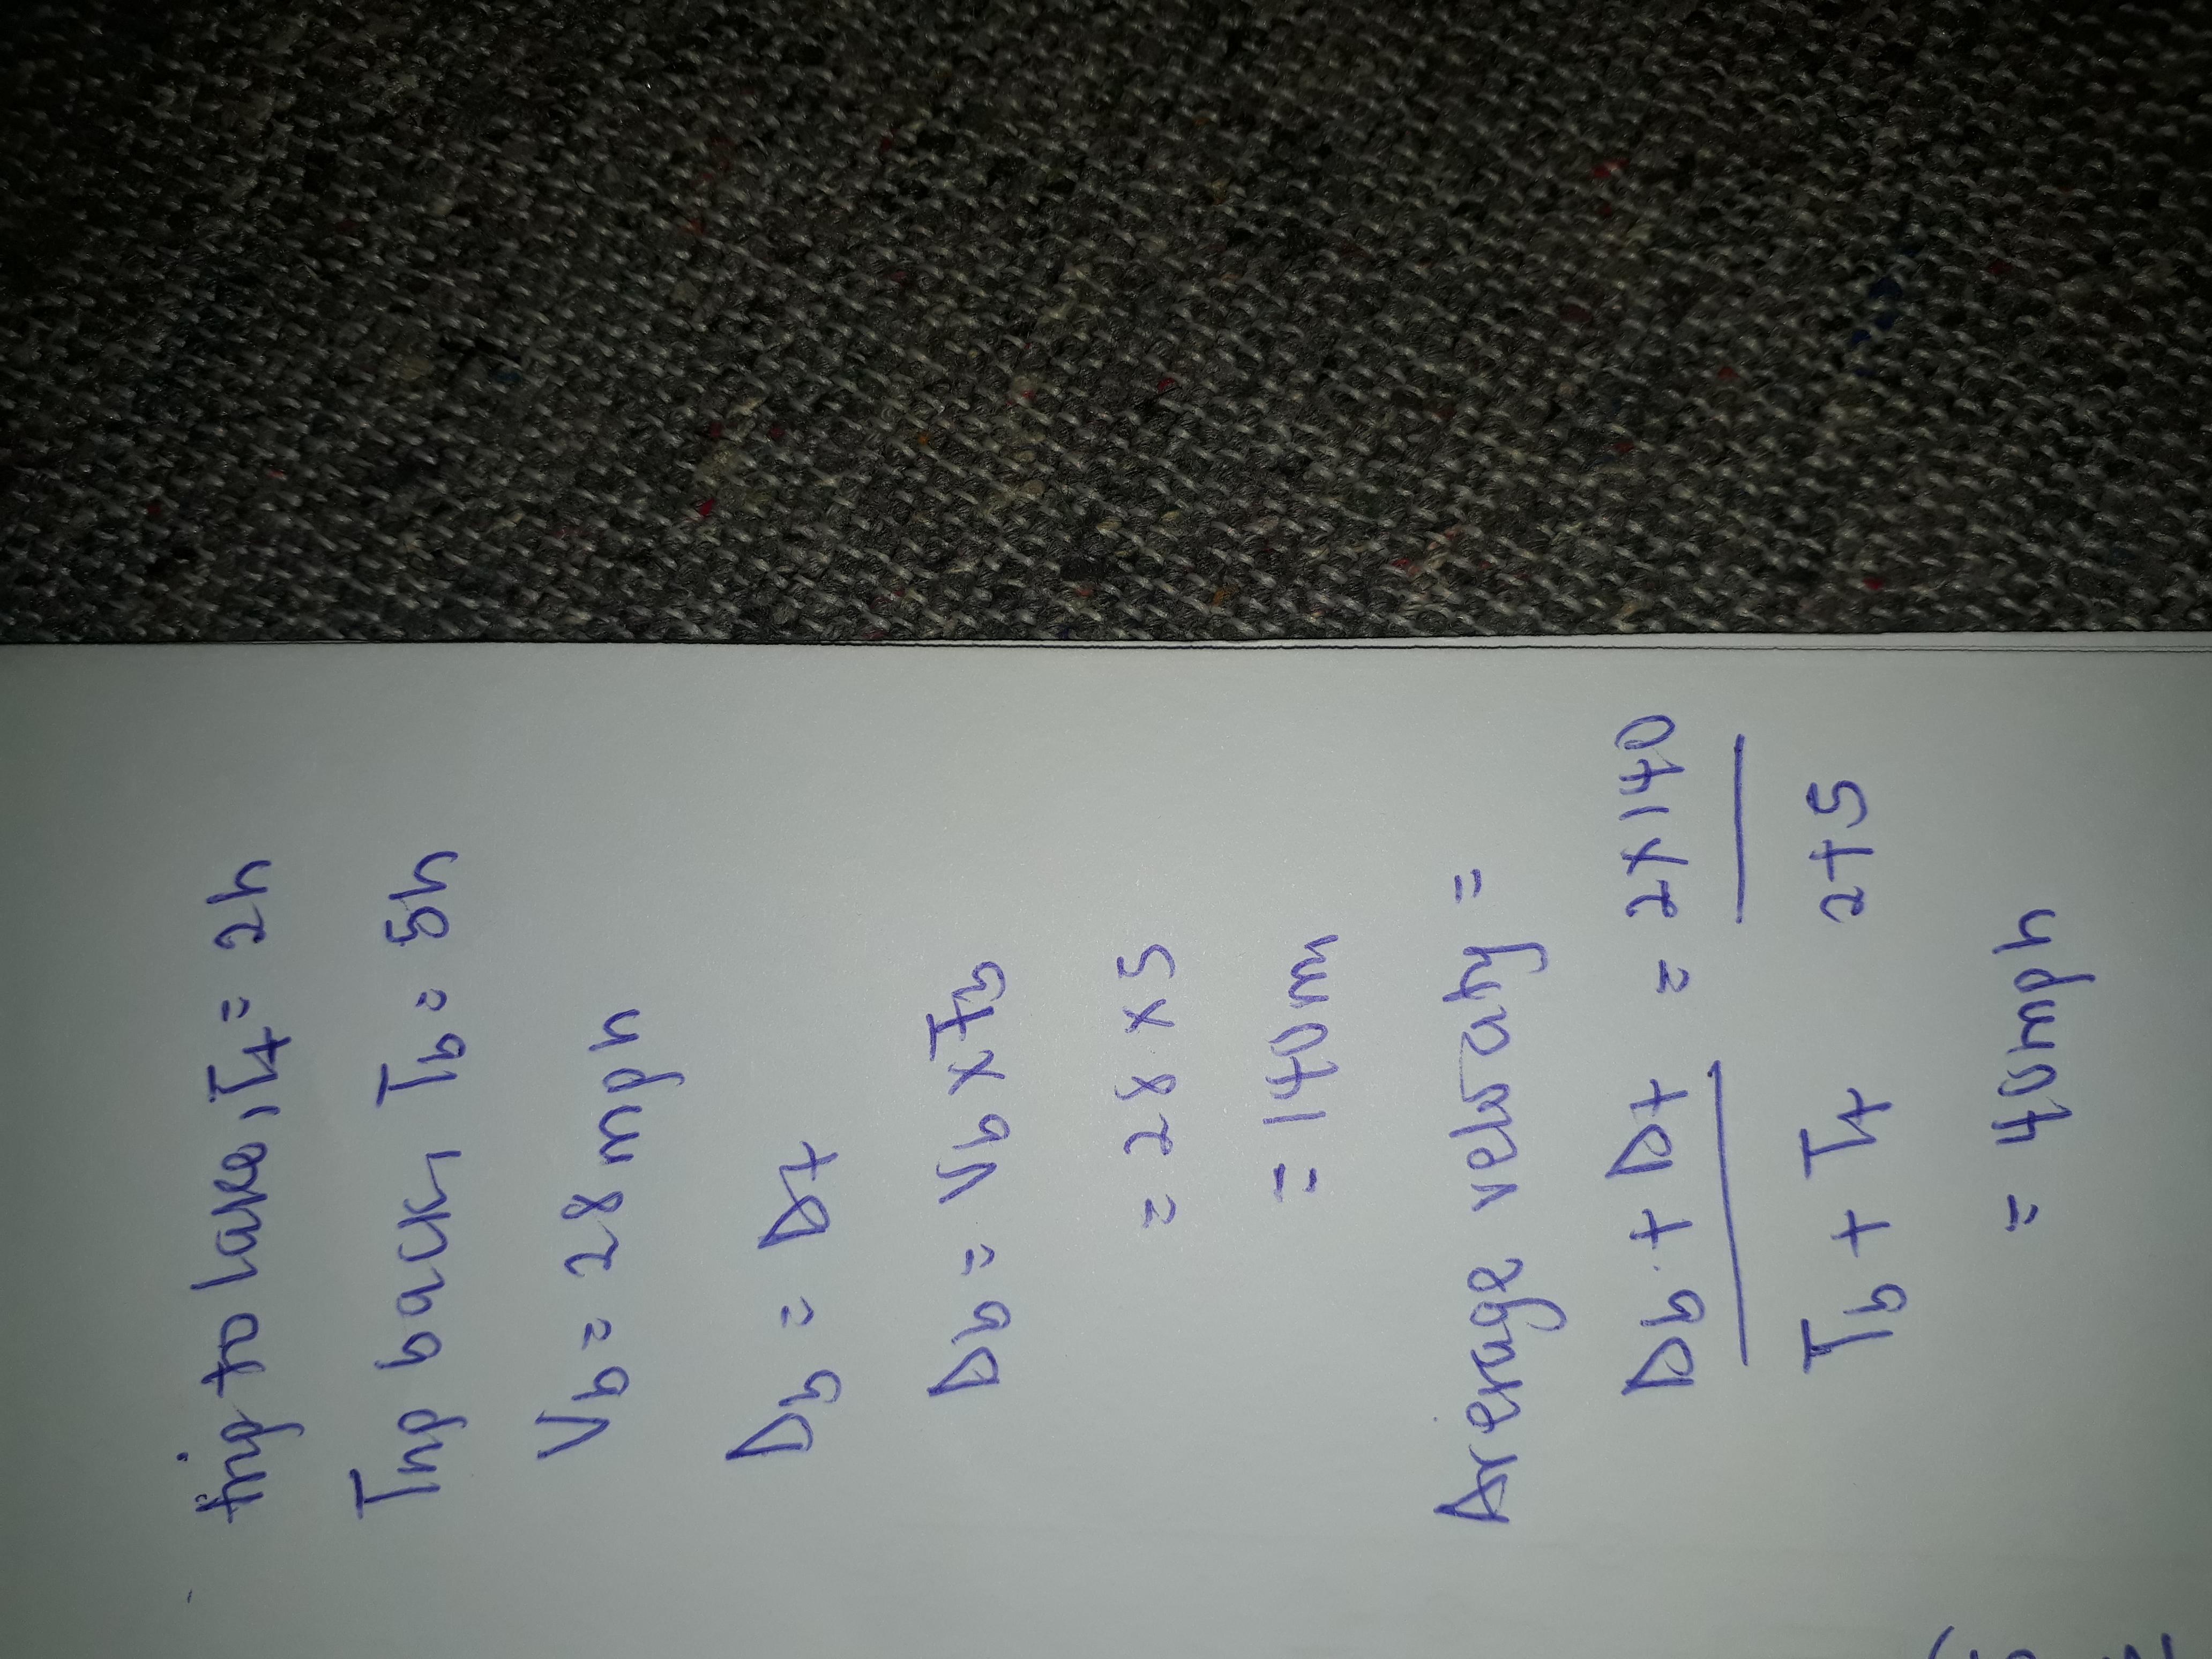 trip to lake, Tt = 2h
Trip back, Tb = 5h
Vb = 28 mph
Db = Dt
Db = Vb x Tb
= 28 x 5
= 140m
Average velocity =
Db + Dt / Tb + Tt = 2x140 / 2+5
= 40mph